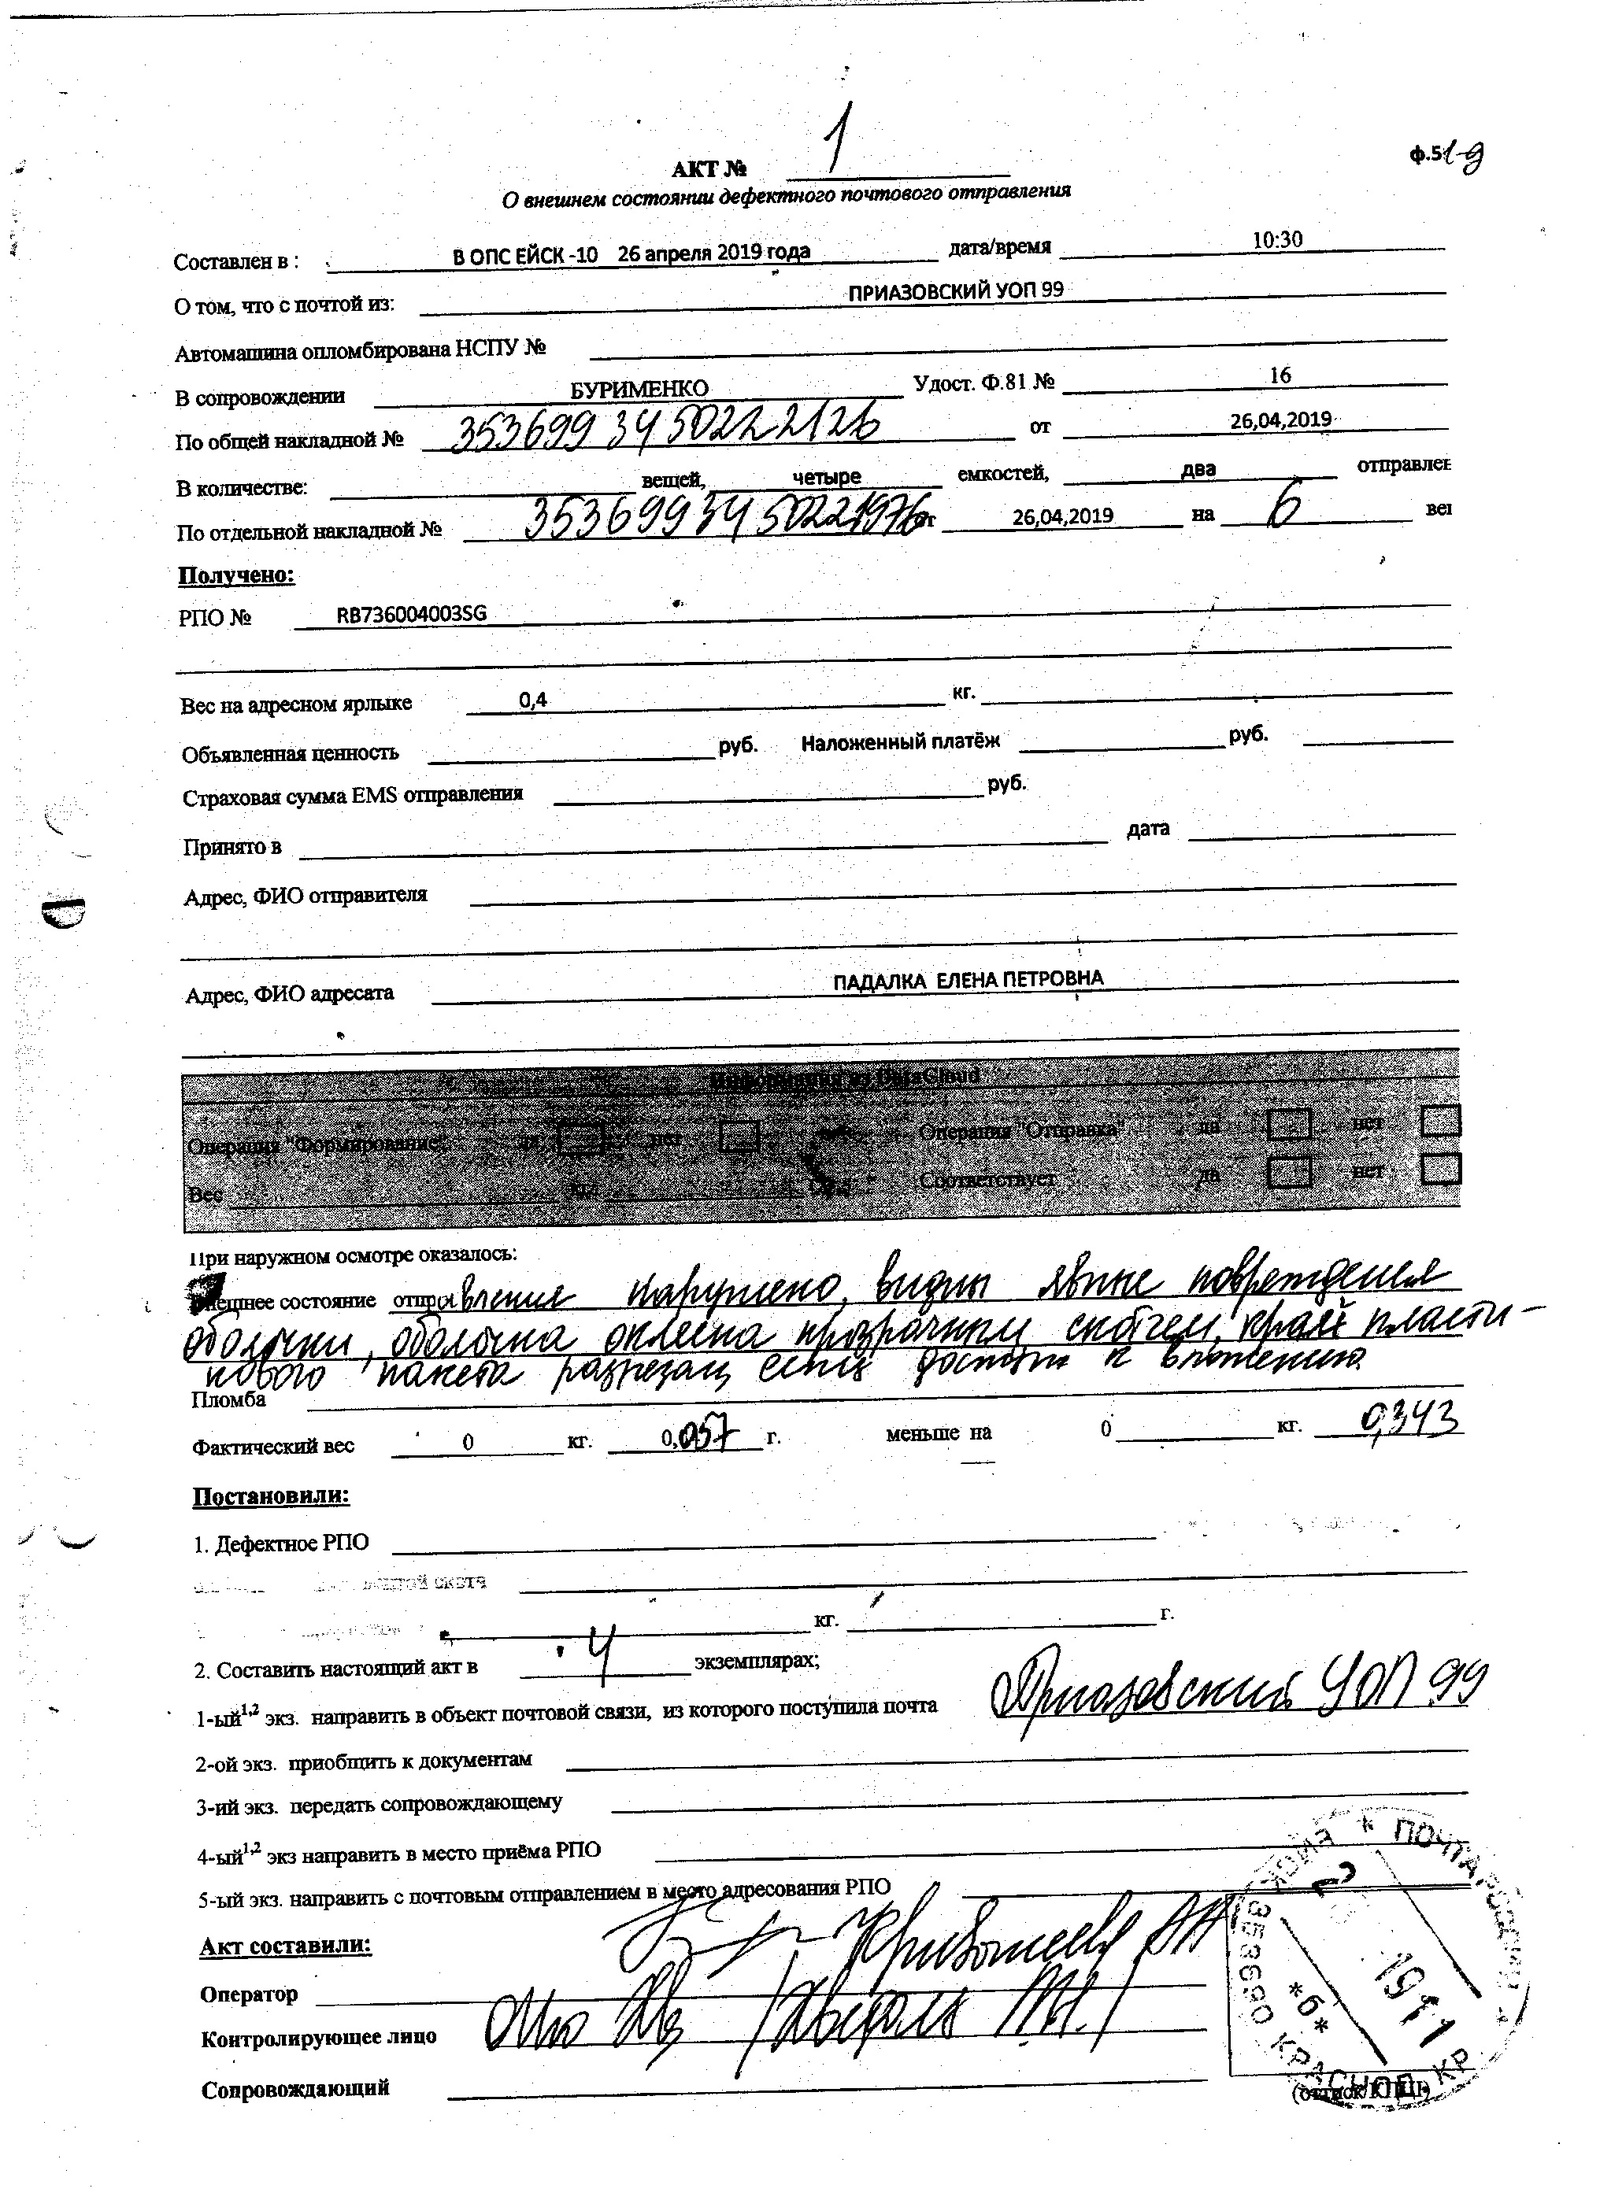 1
ф.51-д
АКТ №
О внешнем состоянии дефектного почтового отправления
Составлен в : В ОПС ЕЙСК -10 26 апреля 2019 года дата/время 10:30
О том, что с почтой из: ПРИАЗОВСКИЙ УОП 99
Автомашина опломбирована НСПУ №
В сопровождении БУРИМЕНКО Удост. Ф.81 № 16
По общей накладной № 353699 34 50222126 от 26,04,2019
В количестве: вещей, четыре емкостей, два отправлен
По отдельной накладной № 353699 34 50221976 от 26,04,2019 на 6 вещ
Получено:
РПО № RB736004003SG
Вес на адресном ярлыке 0,4 кг.
Объявленная ценность руб. Наложенный платёж руб.
Страховая сумма EMS отправления руб.
Принято в дата
Адрес, ФИО отправителя
Адрес, ФИО адресата ПАДАЛКА ЕЛЕНА ПЕТРОВНА
Информация из DataCloud
Операция "Формирование" да нет Операция "Отправка" да нет
Вес кг. Соответствует да нет
При наружном осмотре оказалось:
Внешнее состояние отправления нарушено, видны явные повреждения
оболочки, оболочка оклеена прозрачным скотчем, край пласти-
кового пакета разрезан, есть доступ к вложению
Пломба
Фактический вес 0 кг. 0,057 г. меньше на 0 кг. 0,343
Постановили:
1. Дефектное РПО
кг. г.
2. Составить настоящий акт в 4 экземплярах;
1-ый1,2 экз. направить в объект почтовой связи, из которого поступила почта Приазовский УОП 99
2-ой экз. приобщить к документам
3-ий экз. передать сопровождающему
4-ый1,2 экз направить в место приёма РПО
5-ый экз. направить с почтовым отправлением в место адресования РПО
Акт составили:
Оператор
Контролирующее лицо
Сопровождающий
353690 КРАСНОД. КР.
*б*
1911